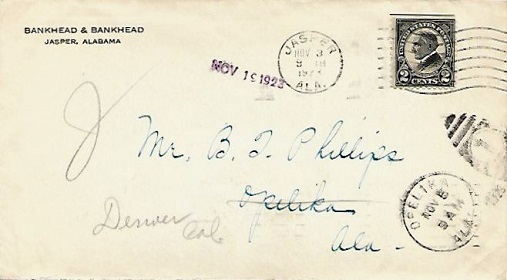 BANKHEAD & BANKHEAD
JASPER, ALABAMA
JASPER
NOV 3
1923
ALA.
NOV 19 1923
UNITED STATES POSTAGE
2 CENTS 2
Mr. B. T. Phillips
Opelika
Ala -
Denver
Col.
OPELIKA
NOV 5
9 AM
ALA.